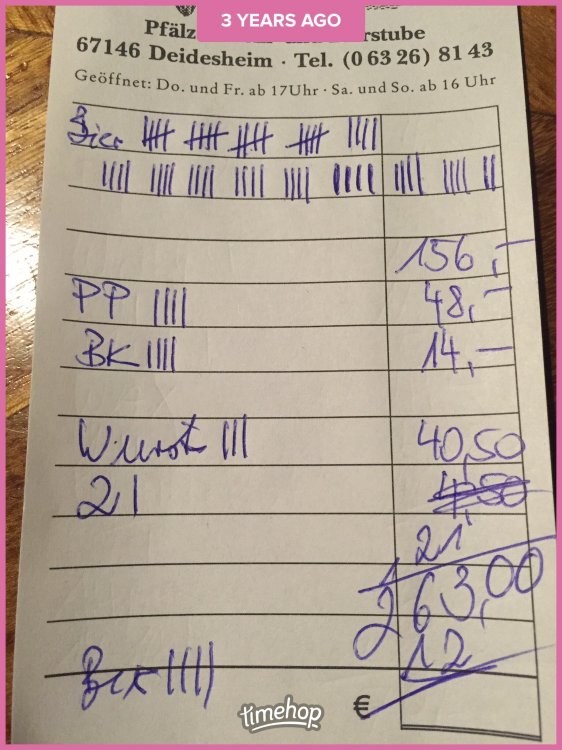 3 YEARS AGO
Pfälz rstube
67146 Deidesheim · Tel. (0 63 26) 81 43
Geöffnet: Do. und Fr. ab 17Uhr · Sa. und So. ab 16 Uhr
Bier
156,-
PP |||| 48,-
BK |||| 14,-
Wurst ||| 40,50
21 4,50
21
263,00
12
Bier ||||
€
timehop